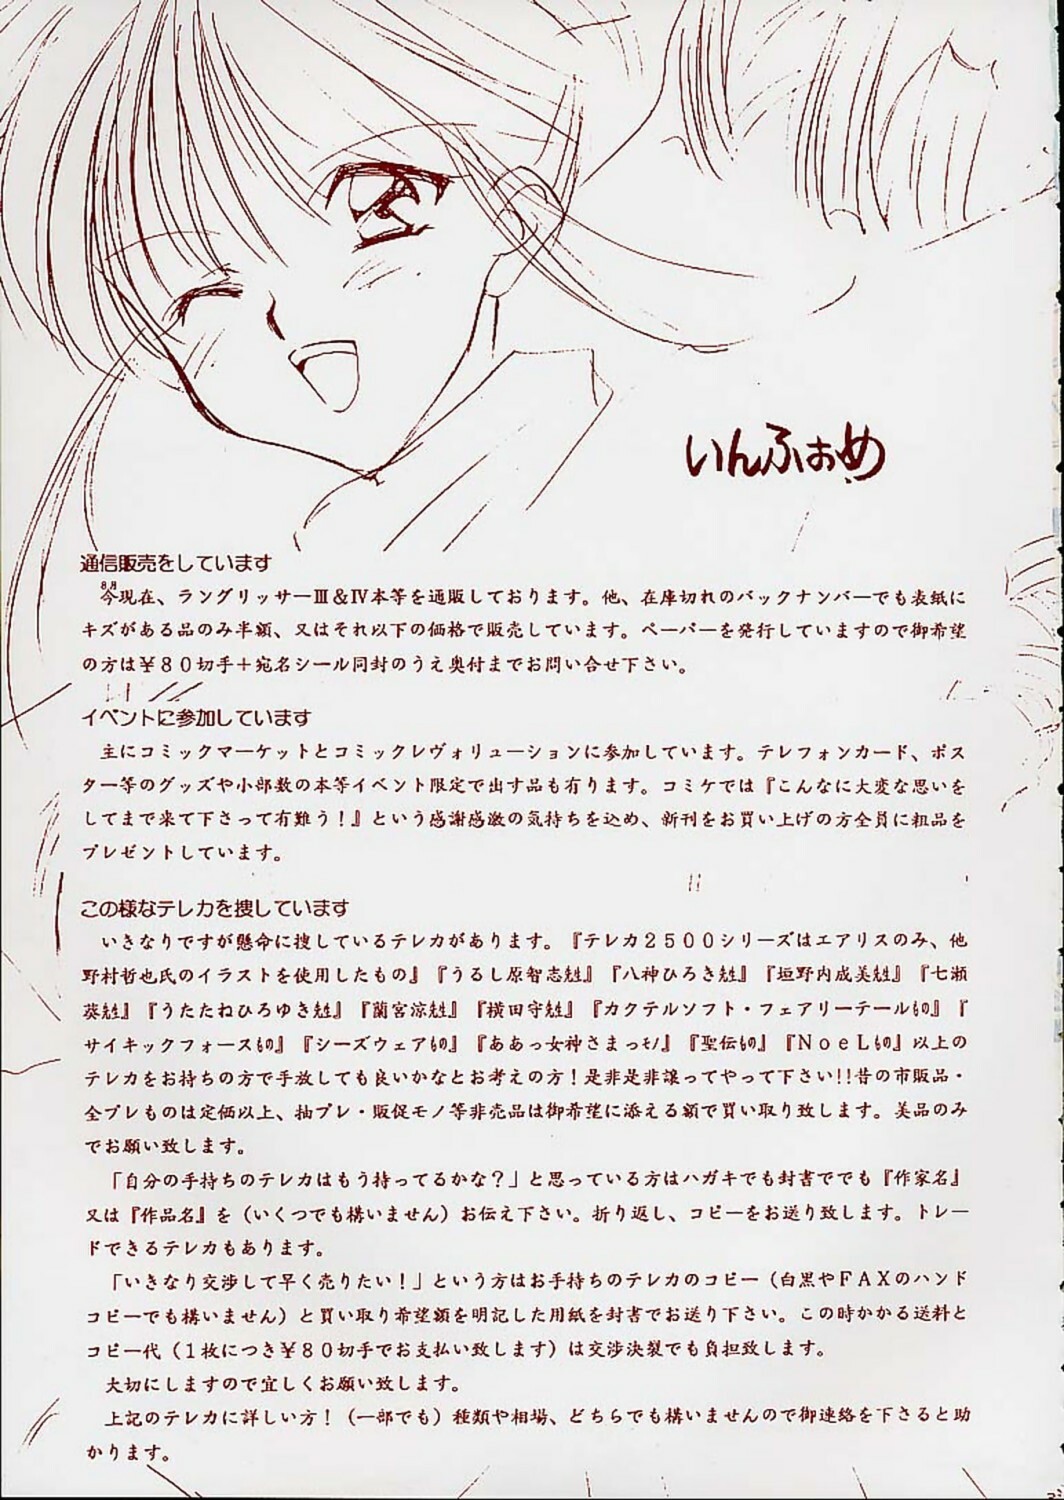 いんふぉめ
通信販売をしています
8.8
今現在、ラングリッサーⅢ&Ⅳ本等を通販しております。他、在庫切れのバックナンバーでも表紙に
キズがある品のみ半額、又はそれ以下の価格で販売しています。ペーパーを発行していますので御希望
の方は￥８０切手＋宛名シール同封のうえ奥付までお問い合せ下さい。
イベントに参加しています
主にコミックマーケットとコミックレヴォリューションに参加しています。テレフォンカード、ポス
ター等のグッズや小部数の本等イベント限定で出す品も有ります。コミケでは『こんなに大変な思いを
してまで来て下さって有難う！』という感謝感激の気持ちを込め、新刊をお買い上げの方全員に粗品を
プレゼントしています。
この様なテレカを捜しています
いきなりですが懸命に捜しているテレカがあります。『テレカ２５００シリーズはエアリスのみ、他
野村哲也氏のイラストを使用したもの』『うるし原智志㐂』『八神ひろき㐂』『垣野内成美㐂』『七瀬
葵㐂』『うたたねひろゆき㐂』『蘭宮涼㐂』『横田守㐂』『カクテルソフト・フェアリーテールもの』『
サイキックフォースもの』『シーズウェアもの』『ああっ女神さまっモノ』『聖伝もの』『ＮｏｅＬもの』以上の
テレカをお持ちの方で手放しても良いかなとお考えの方！是非是非譲ってやって下さい!!昔の市販品・
全プレものは定価以上、抽プレ・販促モノ等非売品は御希望に添える額で買い取り致します。美品のみ
でお願い致します。
「自分の手持ちのテレカはもう持ってるかな？」と思っている方はハガキでも封書ででも『作家名』
又は『作品名』を（いくつでも構いません）お伝え下さい。折り返し、コピーをお送り致します。トレー
ドできるテレカもあります。
「いきなり交渉して早く売りたい！」という方はお手持ちのテレカのコピー（白黒やＦＡＸのハンド
コピーでも構いません）と買い取り希望額を明記した用紙を封書でお送り下さい。この時かかる送料と
コピー代（１枚につき￥８０切手でお支払い致します）は交渉決裂でも負担致します。
大切にしますので宜しくお願い致します。
上記のテレカに詳しい方！（一部でも）種類や相場、どちらでも構いませんので御連絡を下さると助
かります。